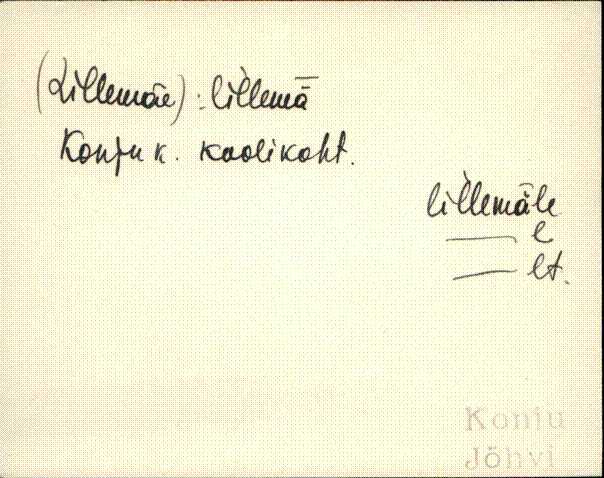 (Lillemäe) : lillemǟ
Konju k. koolikoht.
lillemäle
—— l
—— lt.
Konju
Jõhvi